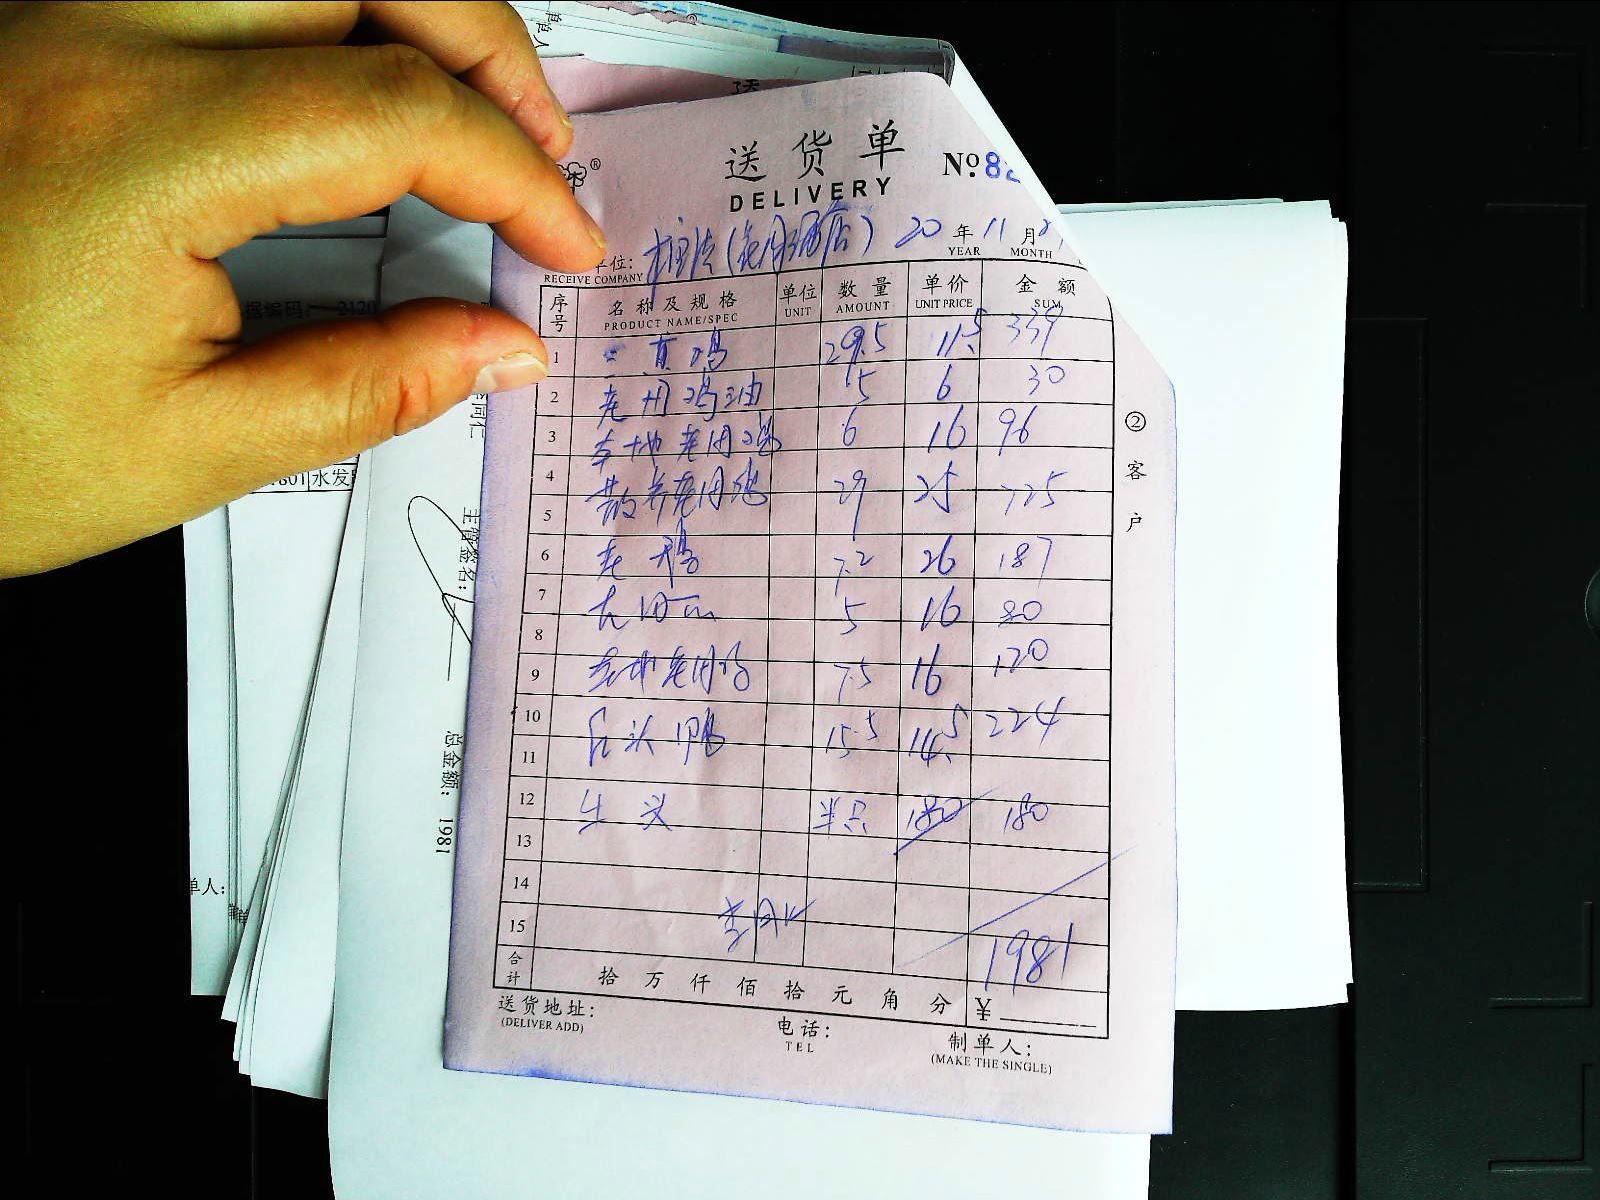 送货单
№82
DELIVERY
20 年 11 月
YEAR MONTH
单位:
RECEIVE COMPANY
序号 名称及规格 单位 数量 单价 金额
PRODUCT NAME/SPEC UNIT AMOUNT UNIT PRICE SUM
1 三黄鸡 29.5 11.5 339
2 老母鸡油 5 6 30
3 本地老母鸡 6 16 96
4 散养老母鸡 29 25 725
5
6 老鸡 7.2 26 187
7 5 16 80
8
9 本地老母鸡 7.5 16 120
10 石头鸭 15.5 14.5 224
11
12 牛头 半只 180 180
13
14
15 李同仁
1981
合计 拾 万 仟 佰 拾 元 角 分 ¥
送货地址:
(DELIVER ADD)
电话:
TEL
制单人:
(MAKE THE SINGLE)
② 客户
据编码: 2120
1801 水发
李同仁
主管签名:
总金额: 1981
单人:
单人
送